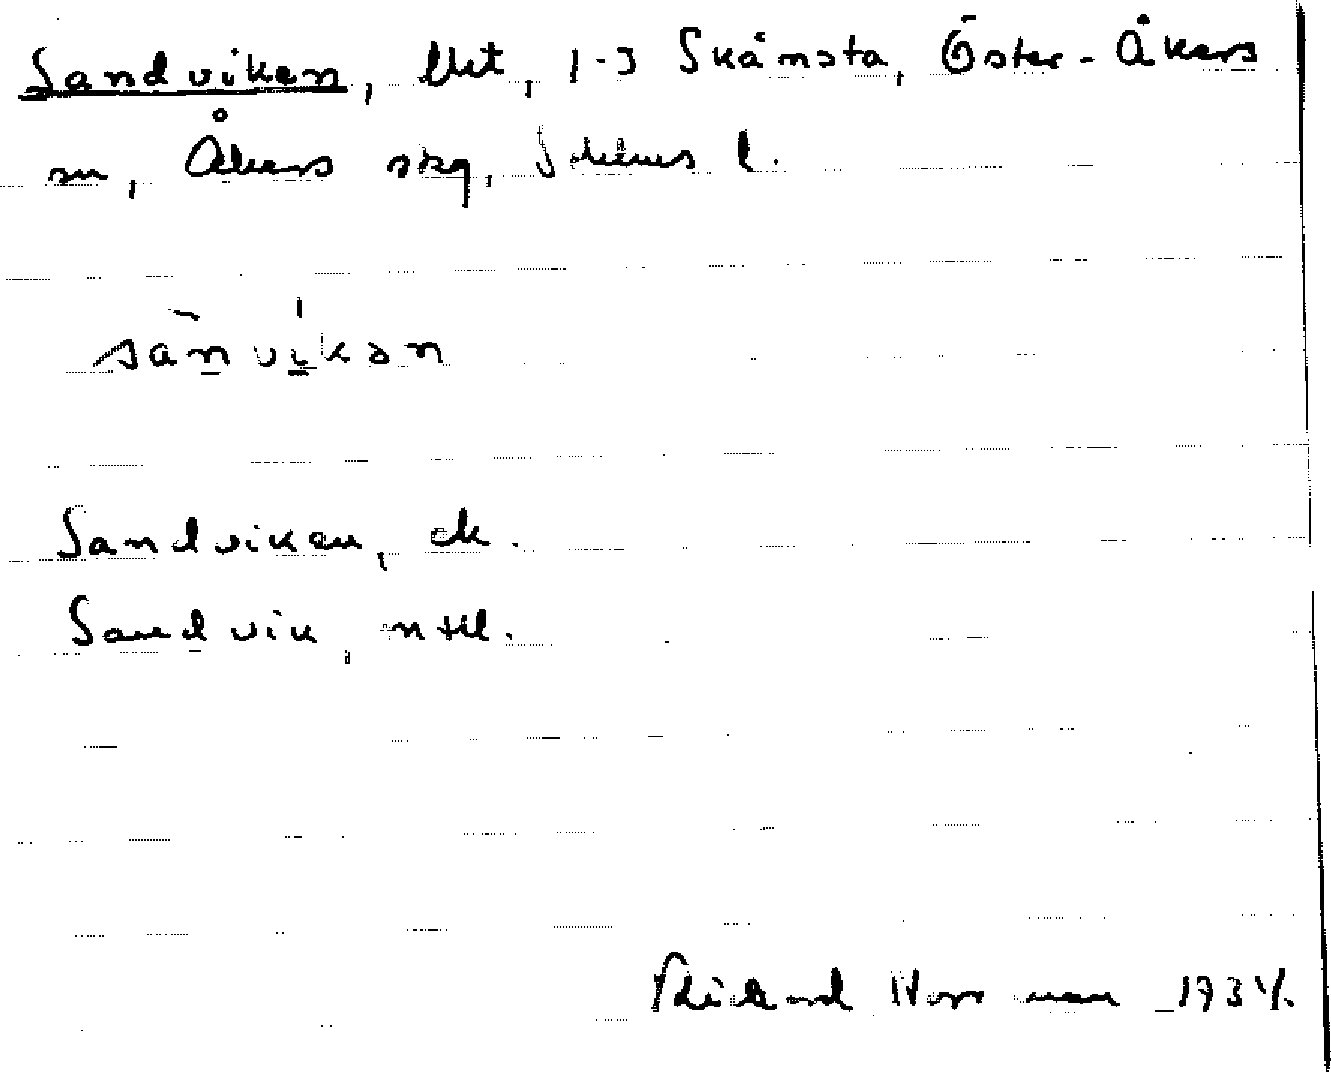 Sandviken, lht, 1-3 Skånsta, Öster-Åkers
sn, Åkers skg, Sthlms l.
sànvíkən
Sandviken, ek.
Sandvik, mtl.
Rickard Norrman 1934.